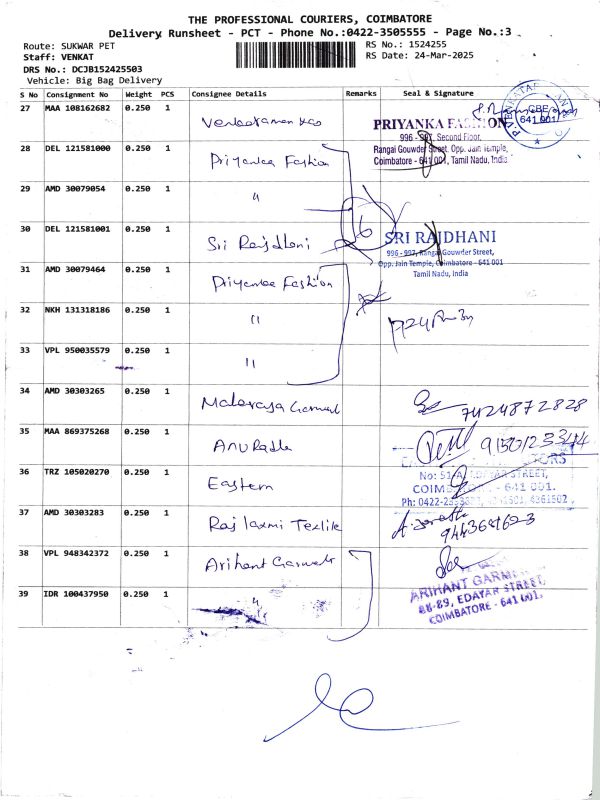 THE PROFESSIONAL COURIERS, COIMBATORE
Delivery Runsheet - PCT - Phone No.:0422-3505555 - Page No.:3
Route: SUKWAR PET
RS No.: 1524255
Staff: VENKAT
RS Date: 24-Mar-2025
DRS No.: DCJB152425503
Vehicle: Big Bag Delivery
S No Consignment No Weight PCS Consignee Details Remarks Seal & Signature
27 MAA 108162682 0.250 1 Venkataraman
PRIYANKA FASHION
996 - 997, Second Floor,
Rangai Gowder Street, Opp. Jain Temple,
Coimbatore - 641 001, Tamil Nadu, India.
CBE
641 001
28 DEL 121581000 0.250 1 Priyanka Fashion
29 AMD 30079054 0.250 1 "
6
30 DEL 121581001 0.250 1 Sri Rajdhani
SRI RAJDHANI
996 - 997, Rangai Gouwder Street,
Opp. Jain Temple, Coimbatore - 641 001
Tamil Nadu, India
31 AMD 30079464 0.250 1 Priyanka Fashion
32 NKH 131318186 0.250 1 "
33 VPL 950035579 0.250 1 "
34 AMD 30303265 0.250 1 Malaraja Garment
7424872828
35 MAA 869375268 0.250 1 Anu Radha
36 TRZ 105020270 0.250 1 Eastern
No: 51-A, EDAYAR STREET,
COIMBATORE - 641 001.
Ph: 0422-
37 AMD 30303283 0.250 1 Raj laxmi Textile
38 VPL 948342372 0.250 1 Arihant Garment
39 IDR 100437950 0.250 1 "
ARIHANT GARMENT
88-89, EDAYAR STREET,
COIMBATORE - 641 001.